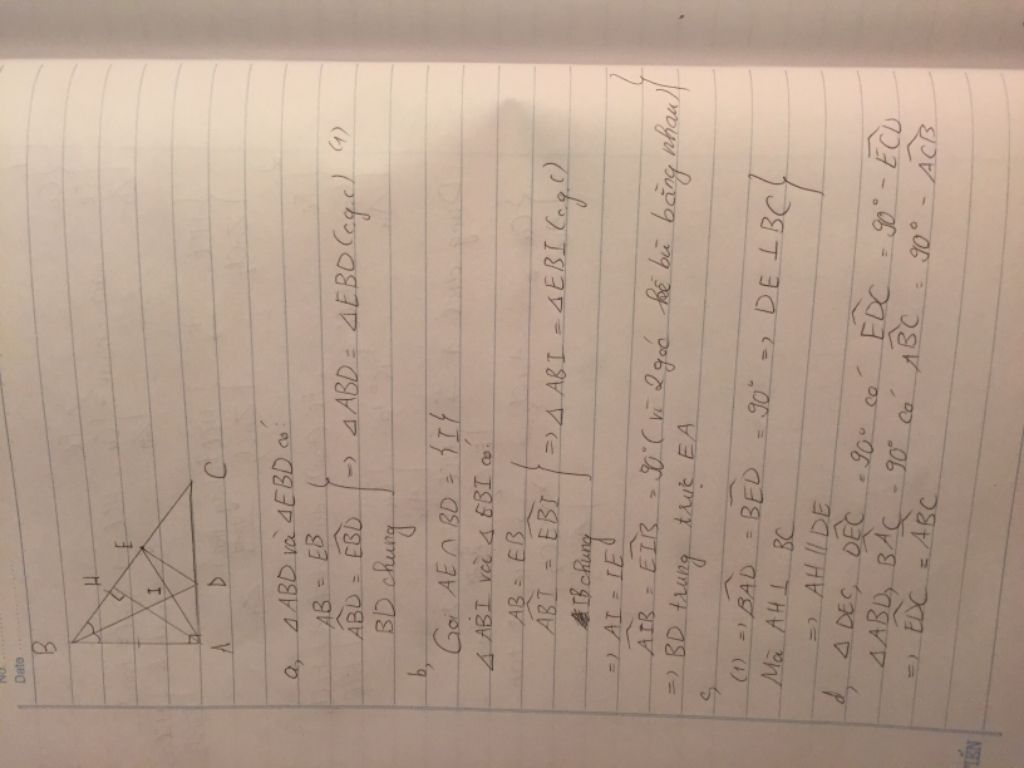 No.
Date
B
H
E
I
A
D
C
a, ΔABD và ΔEBD có:
AB = EB
\widehat{ABD} = \widehat{EBD} } => ΔABD = ΔEBD (c.g.c) (1)
BD chung
b, Gọi AE ∩ BD = {I}
ΔABI và ΔEBI có:
AB = EB
\widehat{ABI} = \widehat{EBI} } => ΔABI = ΔEBI (c.g.c)
IB chung
=> AI = IE }
\widehat{AIB} = \widehat{EIB} = 90° (vì 2 góc kề bù bằng nhau) }
=> BD trung trực EA
c,
(1) => \widehat{BAD} = \widehat{BED} = 90° => DE ⊥ BC }
Mà AH ⊥ BC
=> AH // DE
d, ΔDEC, \widehat{DEC} = 90° có \widehat{EDC} = 90° - \widehat{ECD}
ΔABD, \widehat{BAC} = 90° có \widehat{ABC} = 90° - \widehat{ACB}
=> \widehat{EDC} = \widehat{ABC}
TIẾN